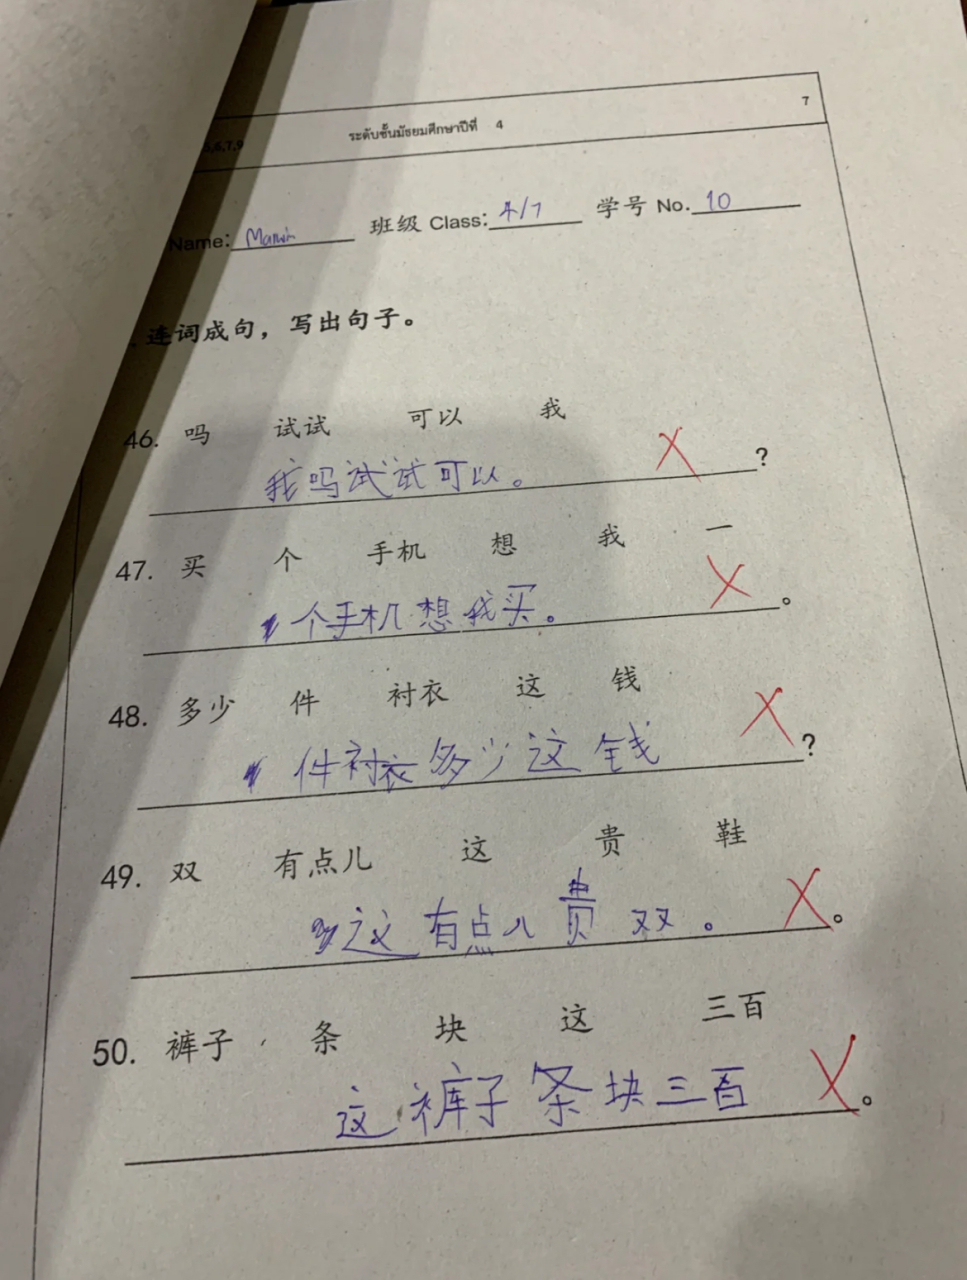 7
5,6,7,9 ระดับชั้นมัธยมศึกษาปีที่ 4
Name: 班级 Class: 4/7 学号 No. 10
连词成句，写出句子。
46. 吗 试试 可以 我
我吗试试可以。 X ?
47. 买 个 手机 想 我 一
个手机想我买。 X 。
48. 多少 件 衬衣 这 钱
件衬衣多少这钱 X ?
49. 双 有点儿 这 贵 鞋
这有点儿贵双。 X 。
50. 裤子 条 块 这 三百
这裤子条块三百 X 。